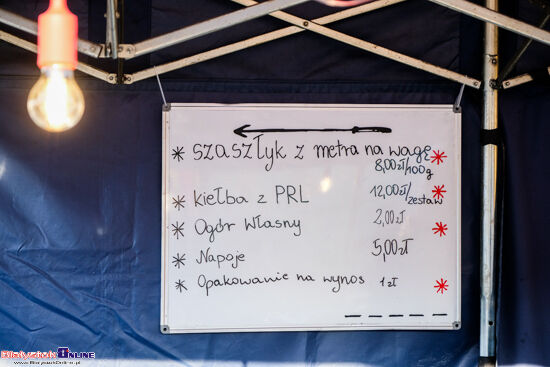 * szaszłyk z metra na wagę *
8,00zł/100g
* kiełba z PRL 12,00zł/zestaw *
* Ogór własny 2,00zł *
* Napoje 5,00zł
* Opakowanie na wynos 1zł *
BiałystokONLINE
www.BialystokOnline.pl